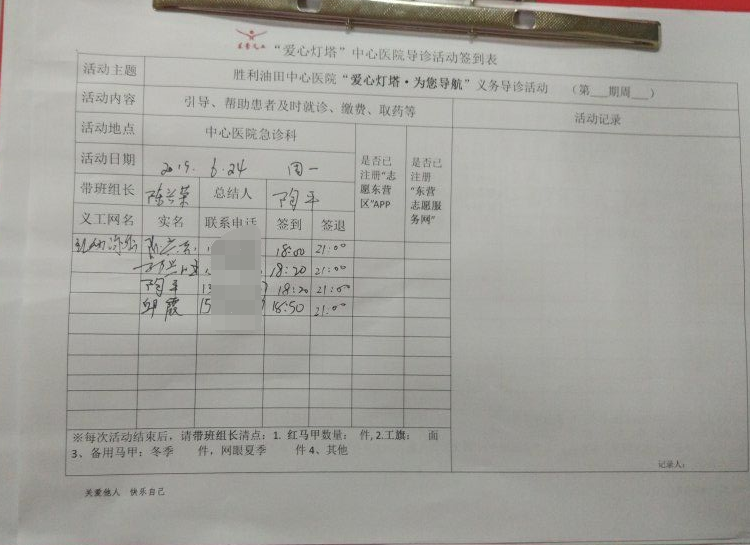 “爱心灯塔”中心医院导诊活动签到表
活动主题 胜利油田中心医院“爱心灯塔·为您导航”义务导诊活动 （第___期周___）
活动内容 引导、帮助患者及时就诊、缴费、取药等 活动记录
活动地点 中心医院急诊科
活动日期 2019. 6.24 周一
是否已注册“志愿东营区”APP
是否已注册“东营志愿服务网”
带班组长 陈兰荣 总结人 陶平
义工网名 实名 联系电话 签到 签退
18:00 21:00
18:20 21:00
陶平 18:20 21:00
邱霞 15 18:50 21:00
※每次活动结束后，请带班组长清点：1. 红马甲数量： 件, 2.工旗： 面
3、备用马甲：冬季 件，网眼夏季 件 4、其他
记录人：
关爱他人 快乐自己